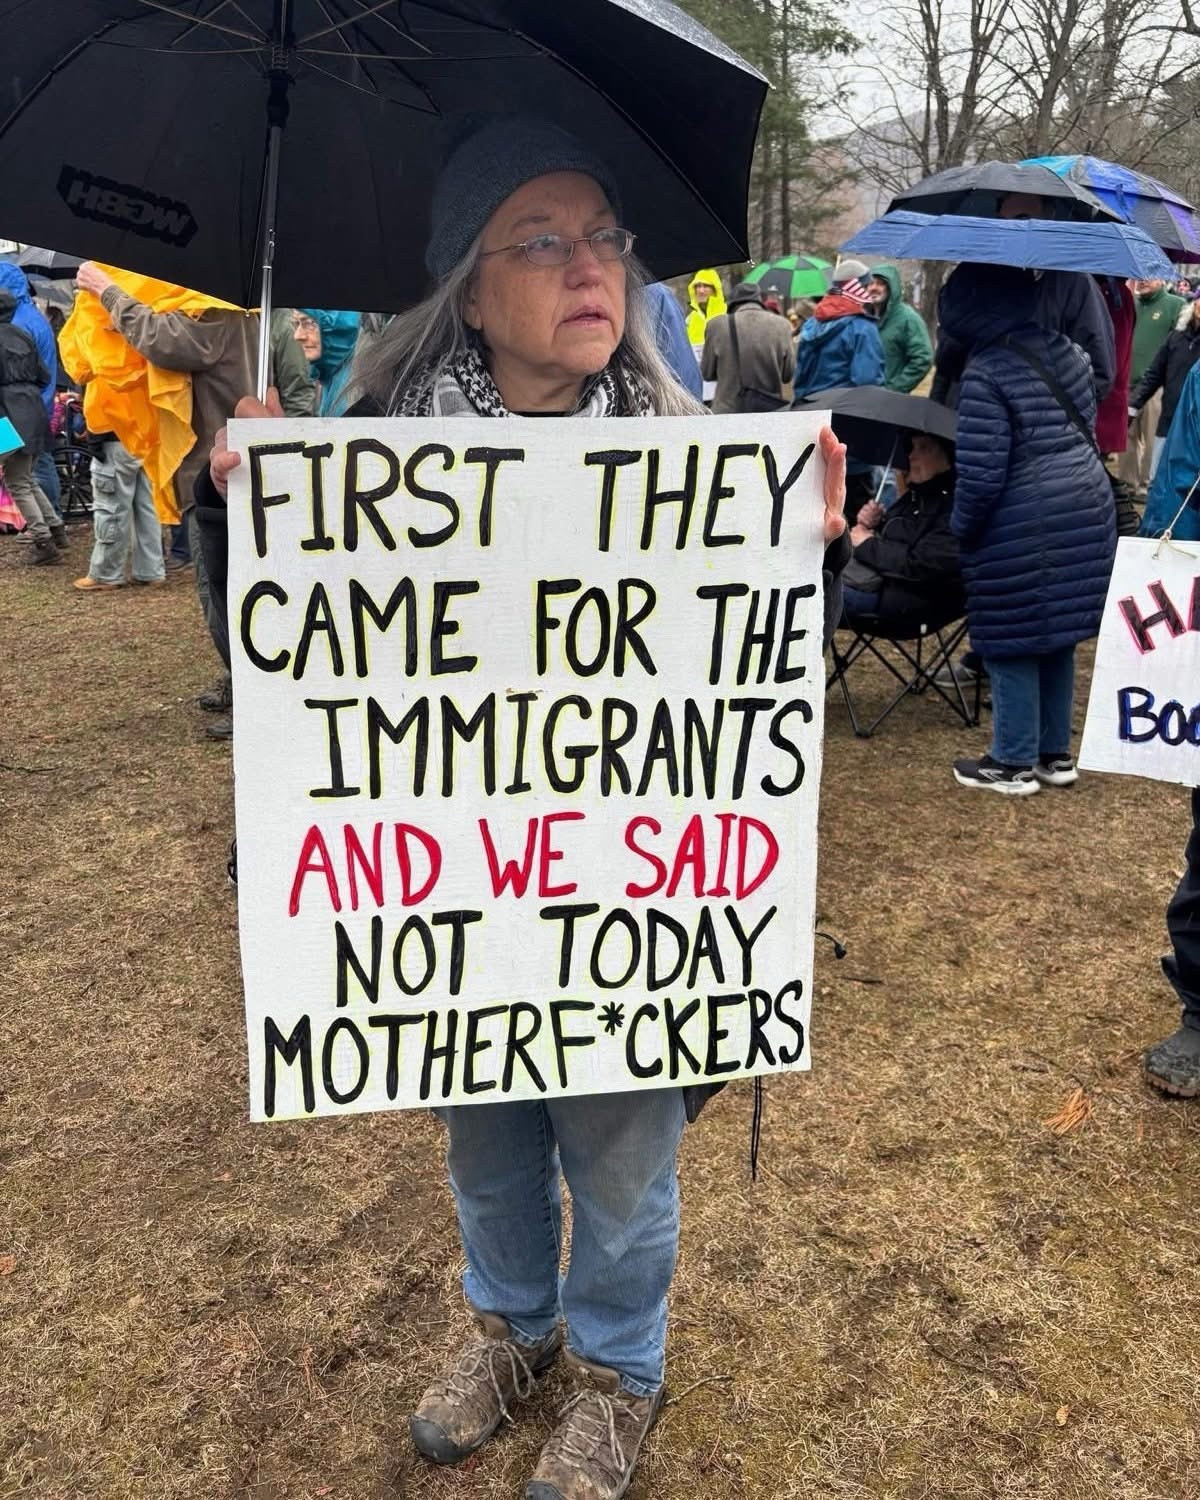 WGBH
FIRST THEY
CAME FOR THE
IMMIGRANTS
AND WE SAID
NOT TODAY
MOTHERF*CKERS